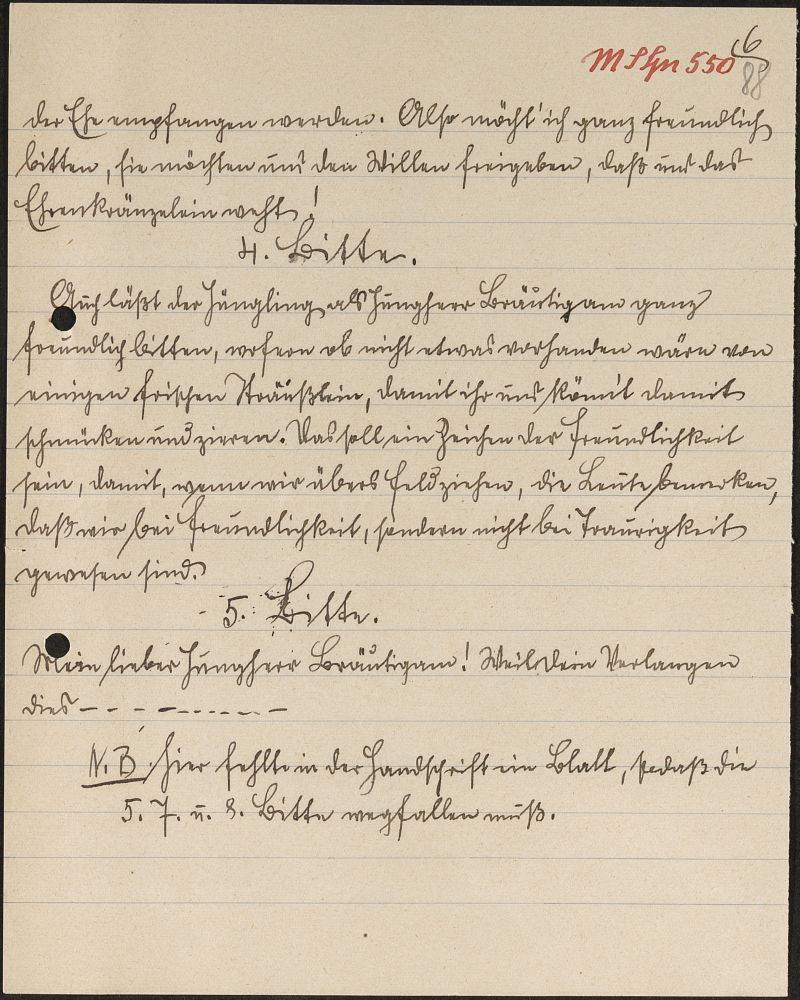 MSgn 550 6
88
der Ehe empfangen werden. Also möcht' ich ganz freundlich
bitten, sie möchten uns den Willen freigeben, daß uns das
Ehrenkränzelein weht!
4. Bitte.
Auch läßt der Jüngling als Jungherr Bräutigam ganz
freundlich bitten, wofern ob nicht etwas vorhanden wäre von
einigen frischen Sträußlein, damit ihr uns könnt damit
schmücken und zieren. Das soll ein Zeichen der Freundlichkeit
sein, damit, wenn wir übers Feld ziehen, die Leute bemerken,
daß wir bei Freundlichkeit, sondern nicht bei Traurigkeit
gewesen sind.
5. Bitte.
Mein lieber Jungherr Bräutigam! Weil Dein Verlangen
dies - - - - - - - - - -
N. B. Hier fehlte in der Handschrift ein Blatt, sodaß die
5. 7. u. 8. Bitte wegfallen muß.